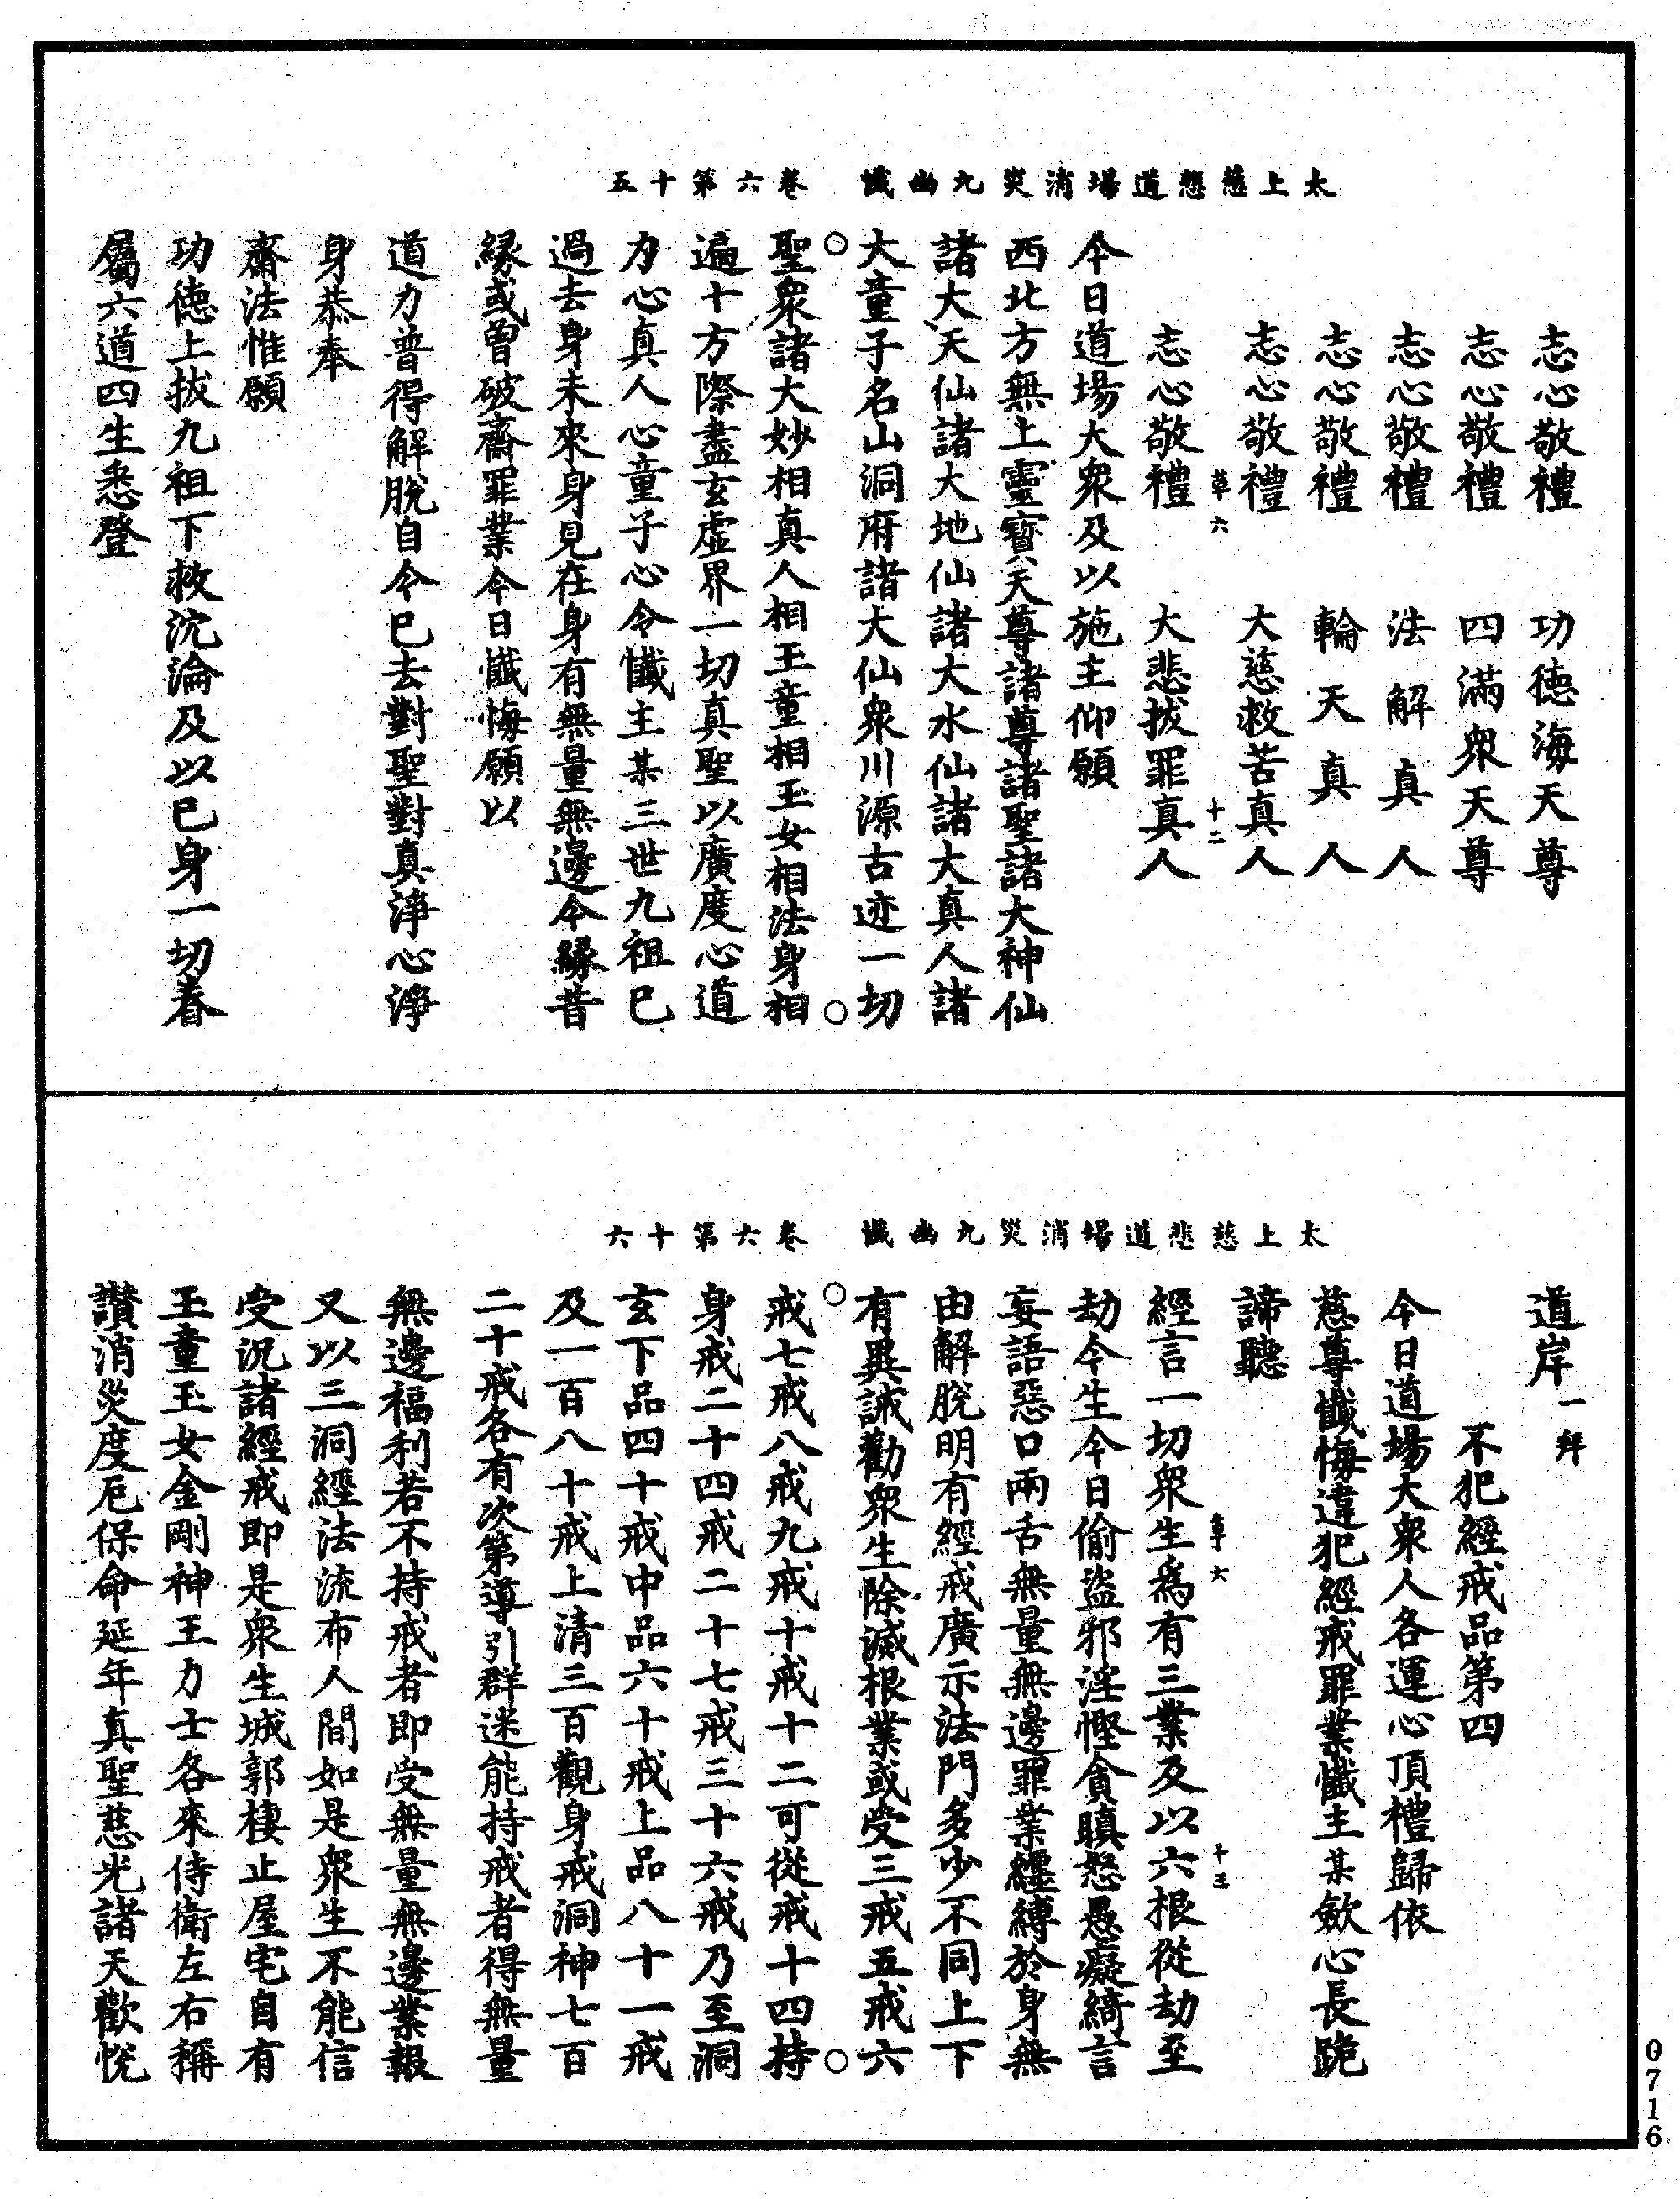 太上慈悲道場消災九幽懺　卷六第十五
志心敬禮　功德海天尊
志心敬禮　四滿衆天尊
志心敬禮　法解真人
志心敬禮　輪天真人
志心敬禮　大慈救苦真人
草六　十二
志心敬禮　大悲拔罪真人
今日道場大衆及以施主仰願
西北方無上靈寳天尊諸尊諸聖諸大神仙
諸大天仙諸大地仙諸大水仙諸大真人諸
大童子名山洞府諸大仙衆川源古迹一切
聖衆諸大妙相真人相玉童相玉女相法身相
遍十方際盡玄虛界一切真聖以廣度心道
力心真人心童子心令懺主某三世九祖已
過去身未來身見在身有無量無邊今縁昔
縁或曾破齋罪業今日懺悔願以
道力普得解脫自令已去對聖對真淨心淨
身恭奉
齋法惟願
功德上拔九祖下救沈淪及以已身一切眷
屬六道四生悉登
太上慈悲道場消災九幽懺　卷六第十六
道岸一拜
不犯經戒品第四
今日道場大衆人各運心頂禮歸依
慈尊懺悔違犯經戒罪業懺主某歛心長跪
諦聽
草六　十三
經言一切衆生為有三業及以六根從劫至
劫今生今日偷盜邪淫慳貪瞋怒愚癡綺言
妄語惡口兩舌無量無邊罪業纏縛於身無
由解脫明有經戒廣示法門多少不同上下
有異誡勸衆生除滅根業或受三戒五戒六
戒七戒八戒九戒十戒十二可從戒十四持
身戒二十四戒二十七戒三十六戒乃至洞
玄下品四十戒中品六十戒上品八十一戒
及一百八十戒上清三百觀身戒洞神七百
二十戒各有次第導引群迷能持戒者得無量
無邊福利若不持戒者即受無量無邊業報
又以三洞經法流布人間如是衆生不能信
受況諸經戒即是衆生城郭棲止屋宅自有
玉童玉女金剛神王力士各來侍衛左右稱
讃消災度厄保命延年真聖慈光諸天歡悅
0716